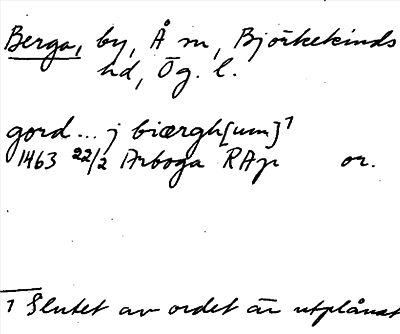 Berga, by, Å sn, Björkekinds
hd, Ög. l.
gord ... j biærgh[um]1
1463 22/2 Arboga RAp or.
1 Slutet av ordet är utplånat